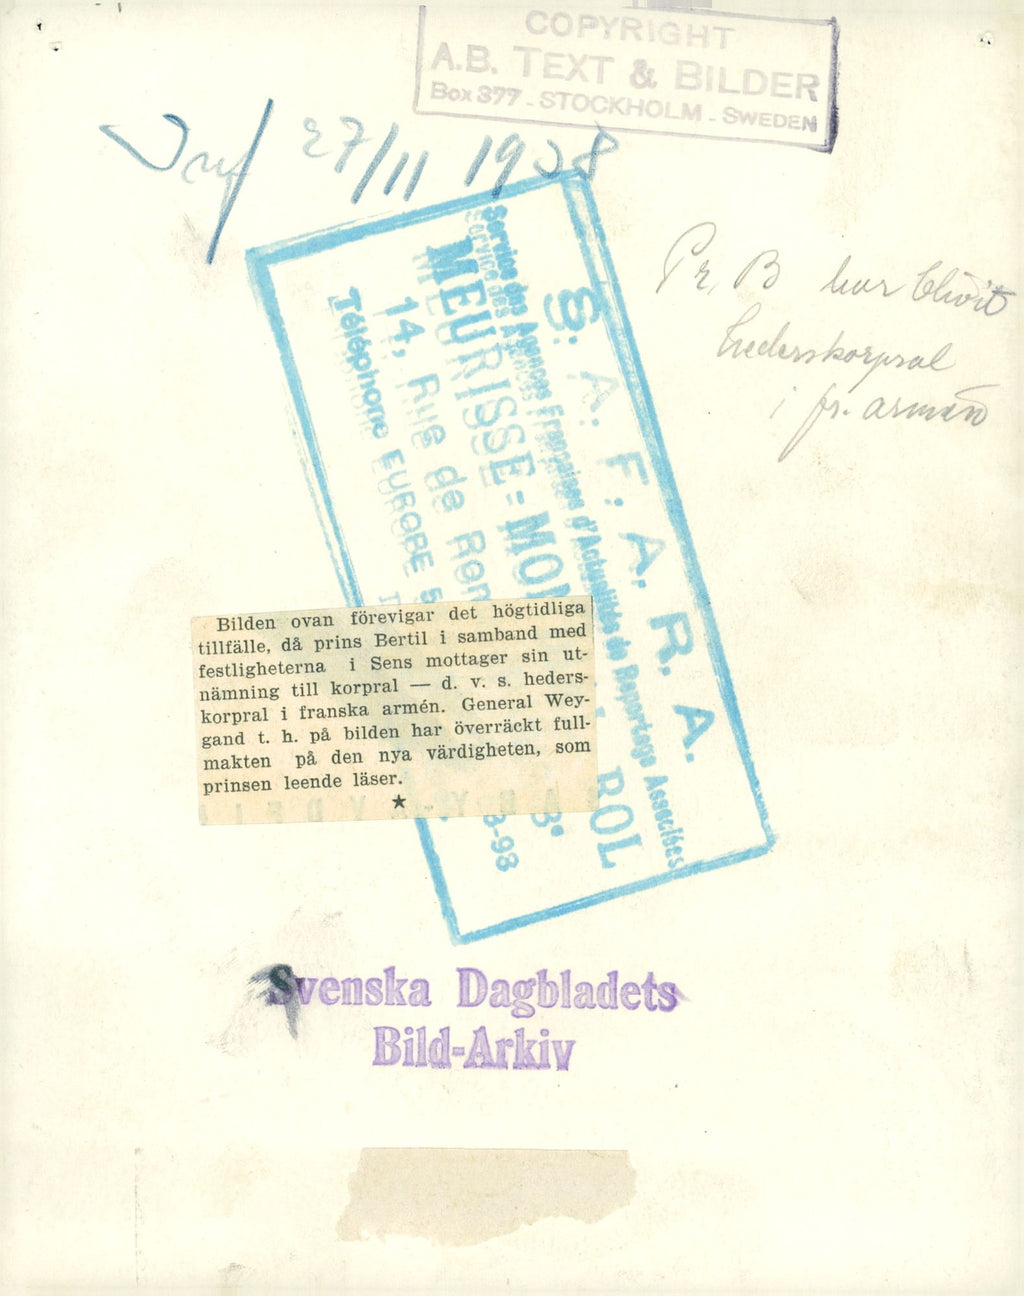 COPYRIGHT
A.B. TEXT & BILDER
Box 377 - STOCKHOLM - SWEDEN
27/11 1938
Pr. B har blivit
hederskorpral
i fr. armén
S. A. F. A. R. A.
Service des Agences Françaises d'Actualités de Reportage Associées
MEURISSE=MON ROL
14, Rue de
Téléphone EUROPE 5 3-98
Bilden ovan förevigar det högtidliga
tillfälle, då prins Bertil i samband med
festligheterna i Sens mottager sin ut-
nämning till korpral — d. v. s. heders-
korpral i franska armén. General Wey-
gand t. h. på bilden har överräckt full-
makten på den nya värdigheten, som
prinsen leende läser.
Svenska Dagbladets
Bild-Arkiv